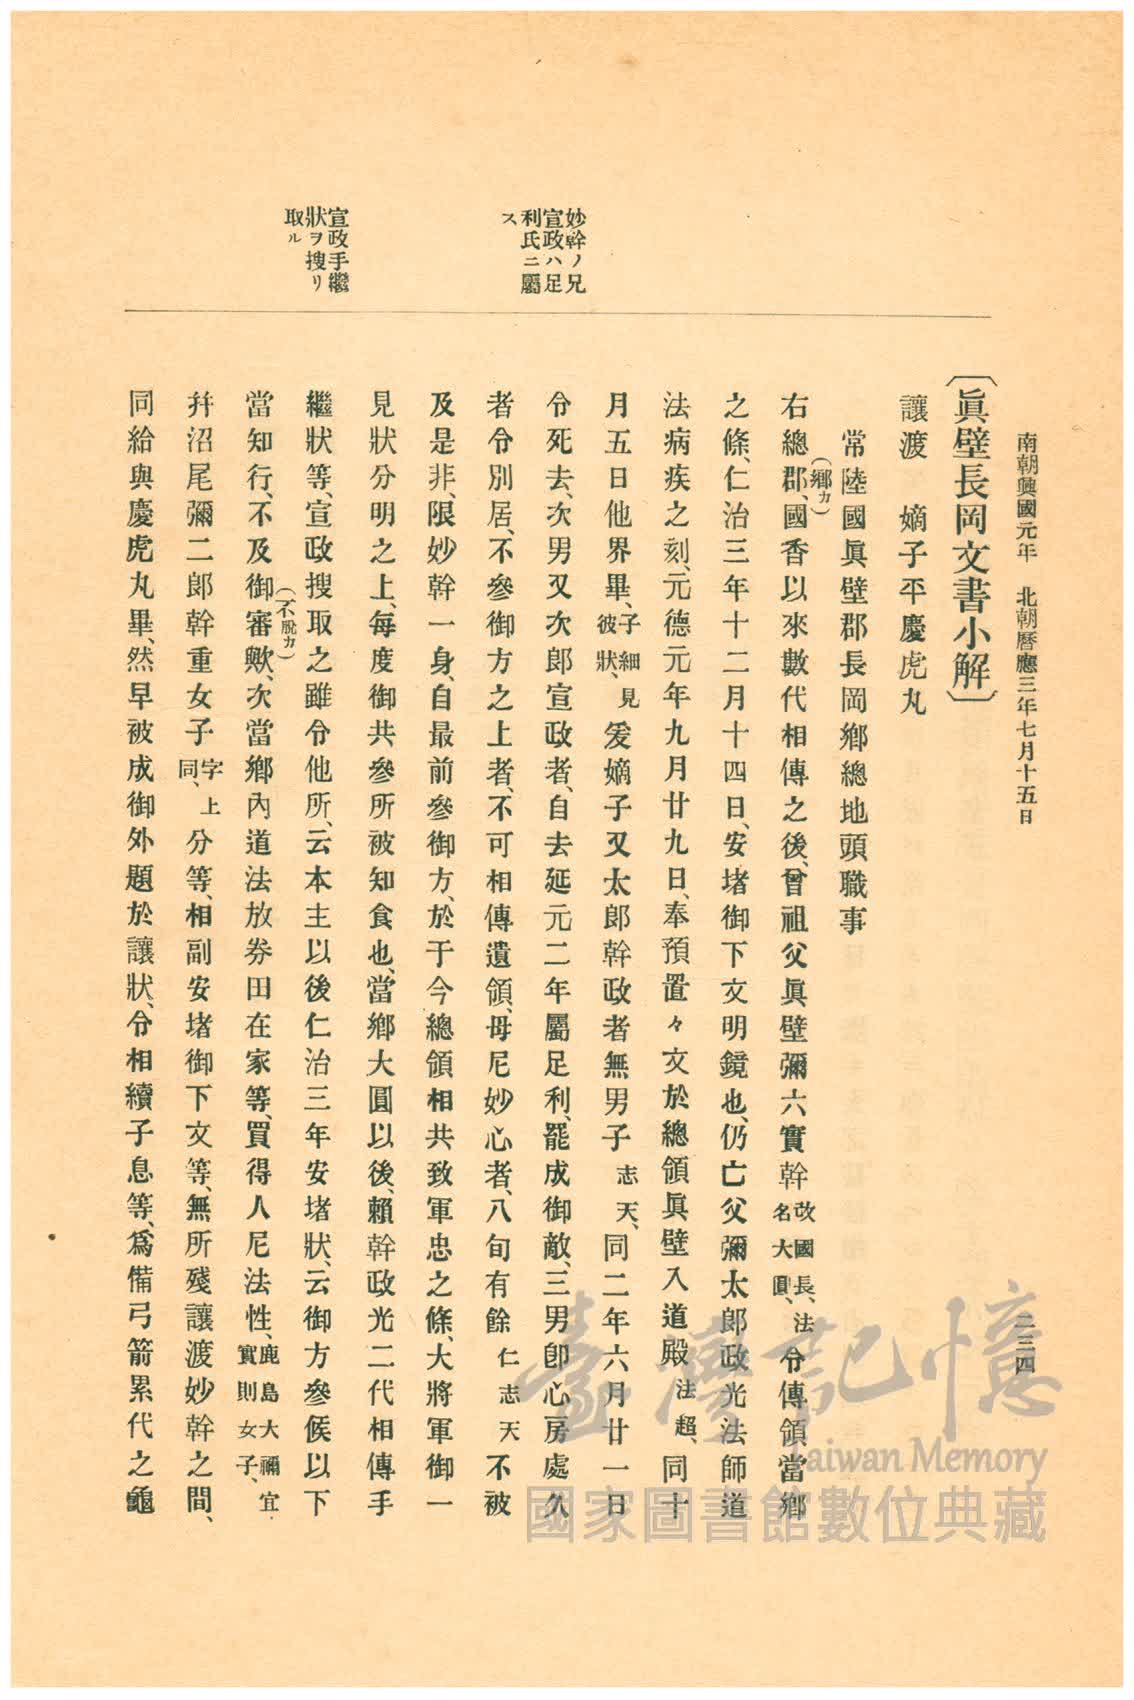 南朝興國元年　北朝曆應三年七月十五日
二三四
妙幹ノ兄
宣政ハ足
利氏ニ屬
ス
宣政手繼
狀ヲ搜リ
取ル
〔眞壁長岡文書小解〕
讓渡　嫡子平慶虎丸
常陸國眞壁郡長岡鄕總地頭職事
右總郡、(鄕カ)國香以來數代相傳之後、曾祖父眞壁彌六實幹改國長、法名大圓、令傳領當鄕
之條、仁治三年十二月十四日、安堵御下文明鏡也、仍亡父彌太郎政光法師道
法病疾之刻、元德元年九月廿九日、奉預置々文於總領眞壁入道殿法超、同十
月五日他界畢、子細見彼狀、爰嫡子又太郎幹政者無男子志天、同二年六月廿一日
令死去、次男又次郎宣政者、自去延元二年屬足利、罷成御敵、三男卽心房處久
者令別居、不參御方之上者、不可相傳遺領、母尼妙心者、八旬有餘仁志天不被
及是非、限妙幹一身、自最前參御方、於于今總領相共致軍忠之條、大將軍御一
見狀分明之上、每度御共參所被知食也、當鄕大圓以後、賴幹政光二代相傳手
繼狀等、宣政搜取之雖令他所、(不脫カ)云本主以後仁治三年安堵狀、云御方參候以下
當知行、不及御審歟、次當鄕內道法放券田在家等、買得人尼法性、鹿島大禰宜實則女子、
幷沼尾彌二郎幹重女子字上同、分等、相副安堵御下文等、無所殘讓渡妙幹之間、
同給與慶虎丸畢、然早被成御外題於讓狀、令相續子息等、爲備弓箭累代之龜
臺灣記憶
Taiwan Memory
國家圖書館數位典藏